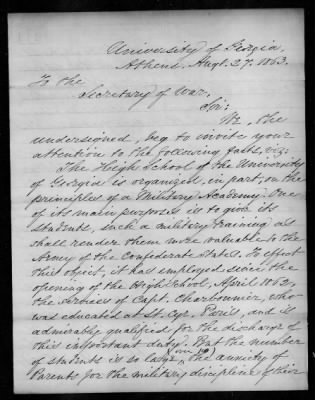 University of Georgia,
Athens, Augt. 27. 1863.
To the
Secretary of War,
Sir;
We, the
undersigned, beg to invite your
attention to the following facts, viz:
The High School of the University
of Georgia is organized, in part, on the
principles of a Military Academy. One
of its main purposes is to give its
students, such a military training as
shall render them more valuable to the
Army of the Confederate States. To effect
this object, it has employed since the
opening of the High School, April 1862,
the services of Capt. Charbonnier, who
was educated at St. Cyr, Paris, and is
admirably qualified for the discharge of
this important duty. But the number
of students is so large, over 110 the anxiety of
Parents for the military discipline of their